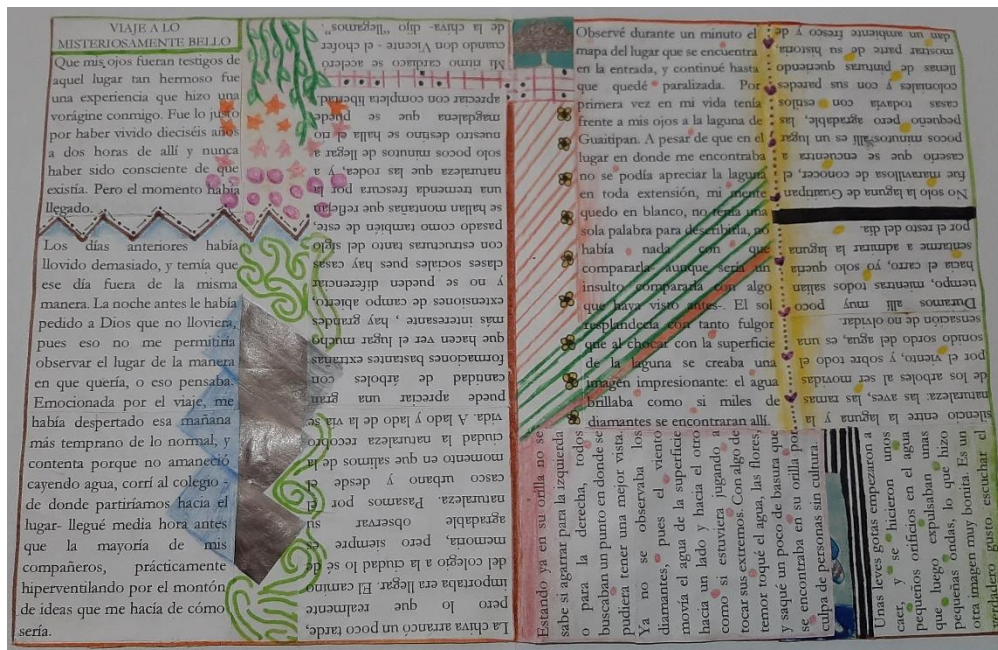 VIAJE A LO
MISTERIOSAMENTE BELLO
Que mis ojos fueran testigos de
aquel lugar tan hermoso fue
una experiencia que hizo una
vorágine conmigo. Fue lo justo
por haber vivido dieciséis años
a dos horas de allí y nunca
haber sido consciente de que
existía. Pero el momento había
llegado.
Los días anteriores había
llovido demasiado, y temía que
ese día fuera de la misma
manera. La noche antes le había
pedido a Dios que no lloviera,
pues eso no me permitiría
observar el lugar de la manera
en que quería, o eso pensaba.
Emocionada por el viaje, me
había despertado esa mañana
más temprano de lo normal, y
contenta porque no amaneció
cayendo agua, corrí al colegio -
de donde partiríamos hacia el
lugar- llegué media hora antes
que la mayoría de mis
compañeros, prácticamente
hiperventilando por el montón
de ideas que me hacía de cómo
sería.
La chiva arrancó un poco tarde,
pero lo que realmente
importaba era llegar. El camino
del colegio a la ciudad lo sé de
memoria, pero siempre es
agradable observar su
naturaleza. Pasamos por el
casco urbano y desde el
momento en que salimos de la
ciudad la naturaleza recobró
vida. A lado y lado de la vía se
puede apreciar una gran
cantidad de árboles con
formaciones bastantes extrañas
que hacen ver el lugar mucho
más interesante , hay grandes
extensiones de campo abierto,
y no se pueden diferenciar
clases sociales pues hay casas
con estructuras tanto del siglo
pasado como también de este,
se hallan montañas que reflejan
una tremenda frescura por la
naturaleza que las rodea, y a
solo pocos minutos de llegar a
nuestro destino se halla el río
magdalena que se puede
apreciar con completa libertad
Mi ritmo cardiaco se aceleró
cuando don Vicente - el chofer
de la chiva- dijo "llegamos".
Observé durante un minuto el
mapa del lugar que se encuentra
en la entrada, y continué hasta
que quedé paralizada. Por
primera vez en mi vida tenía
frente a mis ojos a la laguna de
Guaitipan. A pesar de que en el
lugar en donde me encontraba
no se podía apreciar la laguna
en toda extensión, mi mente
quedo en blanco, no tenía una
sola palabra para describirla, no
había nada con que
compararla- aunque sería un
insulto compararla con algo
que haya visto antes-. El sol
resplandecía con tanto fulgor
que al chocar con la superficie
de la laguna se creaba una
imagen impresionante: el agua
brillaba como si miles de
diamantes se encontraran allí.
Estando ya en su orilla no se
sabe si agarrar para la izquierda
o para la derecha, todos
buscaban un punto en donde se
pudiera tener una mejor vista.
Ya no se observaba los
diamantes, pues el viento
movía el agua de la superficie
hacia un lado y hacia el otro
como si estuviera jugando a
tocar sus extremos. Con algo de
temor toqué el agua, las flores,
y saqué un poco de basura que
se encontraba en su orilla por
culpa de personas sin cultura.
Unas leves gotas empezaron a
caer, y se hicieron unos
pequeños orificios en el agua
que luego expulsaban unas
pequeñas ondas, lo que hizo
otra imagen muy bonita. Es un
verdadero gusto escuchar el
silencio entre la laguna y la
naturaleza: las aves, las ramas
de los arboles al ser movidas
por el viento, y sobre todo el
sonido sordo del agua, es una
sensación de no olvidar.
Duramos allí muy poco
tiempo, mientras todos salían
hacia el carro, yo solo quería
sentarme a admirar la laguna
por el resto del día.
No solo la laguna de Guaitipan
fue maravillosa de conocer, el
caserío que se encuentra a
pocos minutos allí es un lugar
pequeño pero agradable, las
casas todavía con estilos
coloniales y con sus paredes
llenas de pinturas queriendo
mostrar parte de su historia
dan un ambiente fresco y de